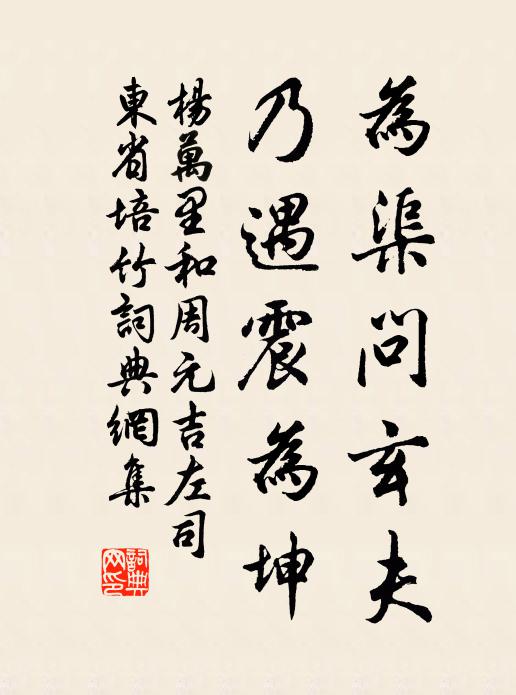 為渠問玄夫
乃遇震為坤
楊萬里和周元吉左司
東省培竹詞典網集
詞典
网印